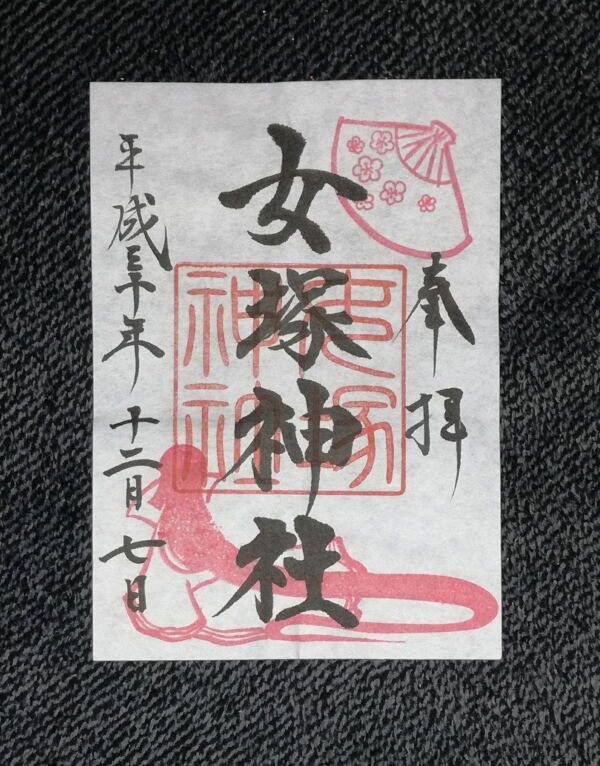 奉拝
女塚神社
平成三十年十二月七日
女塚
神社